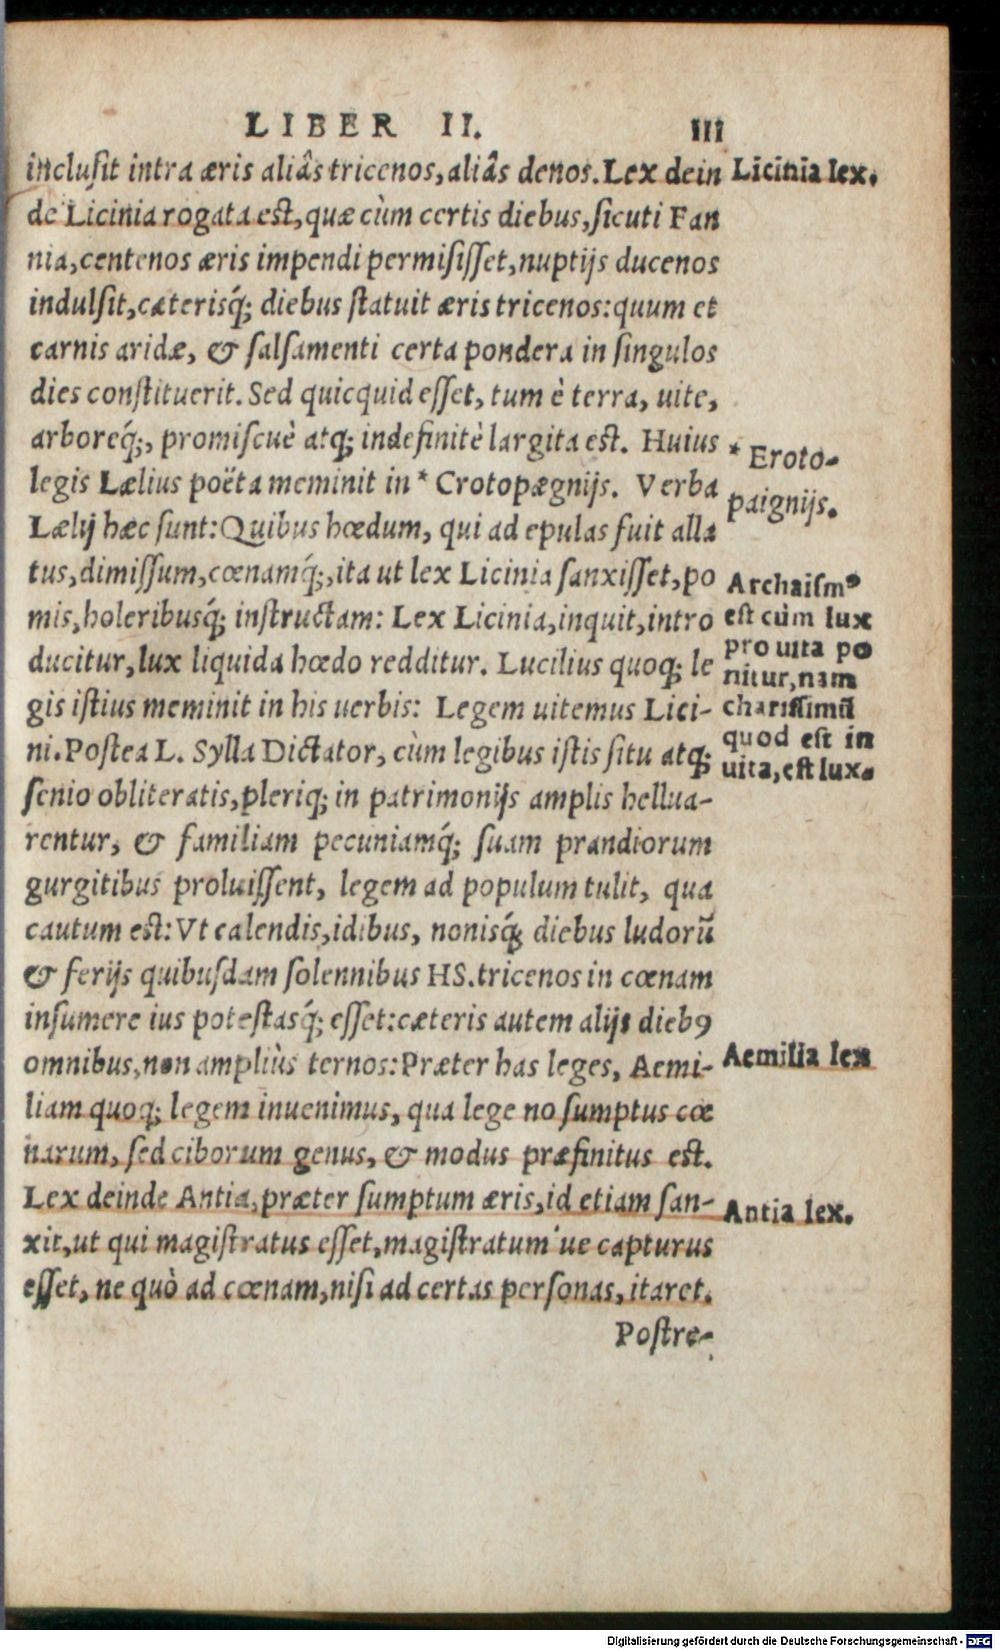 LIBER II. 111
inclusit intra æris aliâs tricenos, aliâs denos. Lex dein
de Licinia rogata est, quæ cùm certis diebus, sicuti Fan
nia, centenos æris impendi permisisset, nuptijs ducenos
indulsit, cæterisq́; diebus statuit æris tricenos: quum et
carnis aridæ, & salsamenti certa pondera in singulos
dies constituerit. Sed quicquid esset, tum è terra, uite,
arboreq́;, promiscuè atq; indefinitè largita est. Huius
legis Lælius poëta meminit in * Crotopægnijs. Verba
Lælij hæc sunt: Quibus hœdum, qui ad epulas fuit alla
tus, dimissum, cœnamq́;, ita ut lex Licinia sanxisset, po
mis, holeribusq́; instructam: Lex Licinia, inquit, intro
ducitur, lux liquida hœdo redditur. Lucilius quoq; le
gis istius meminit in his uerbis: Legem uitemus Lici-
ni. Postea L. Sylla Dictator, cùm legibus istis situ atq;
senio obliteratis, pleriq; in patrimonijs amplis hellua-
rentur, & familiam pecuniamq́; suam prandiorum
gurgitibus proluissent, legem ad populum tulit, qua
cautum est: Vt calendis, idibus, nonisq́; diebus ludorū
& ferijs quibusdam solennibus HS. tricenos in cœnam
insumere ius potestasq́; esset: cæteris autem alijs dieb9
omnibus, non ampliùs ternos: Præter has leges, Aemi-
liam quoq; legem inuenimus, qua lege no sumptus cœ
narum, sed ciborum genus, & modus præfinitus est.
Lex deinde Antia, præter sumptum æris, id etiam san-
xit, ut qui magistratus esset, magistratum'ue capturus
esset, ne quò ad cœnam, nisi ad certas personas, itaret.
Postre-
Licinia lex.
* Eroto-
paignijs.
Archaism9
est cùm lux
pro uita po
nitur, nam
charissimū
quod est in
uita, est lux.
Aemilia lex
Antia lex.
Digitalisierung gefördert durch die Deutsche Forschungsgemeinschaft - DFG